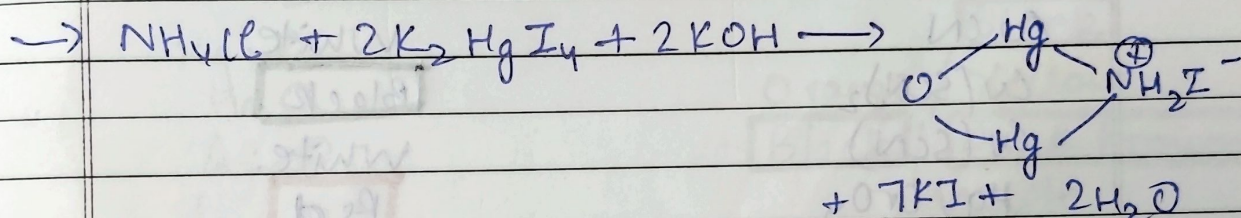 → NH4Cl + 2K2HgI4 + 2KOH → O Hg Hg NH2⊕I⁻
+ 7KI + 2H2O